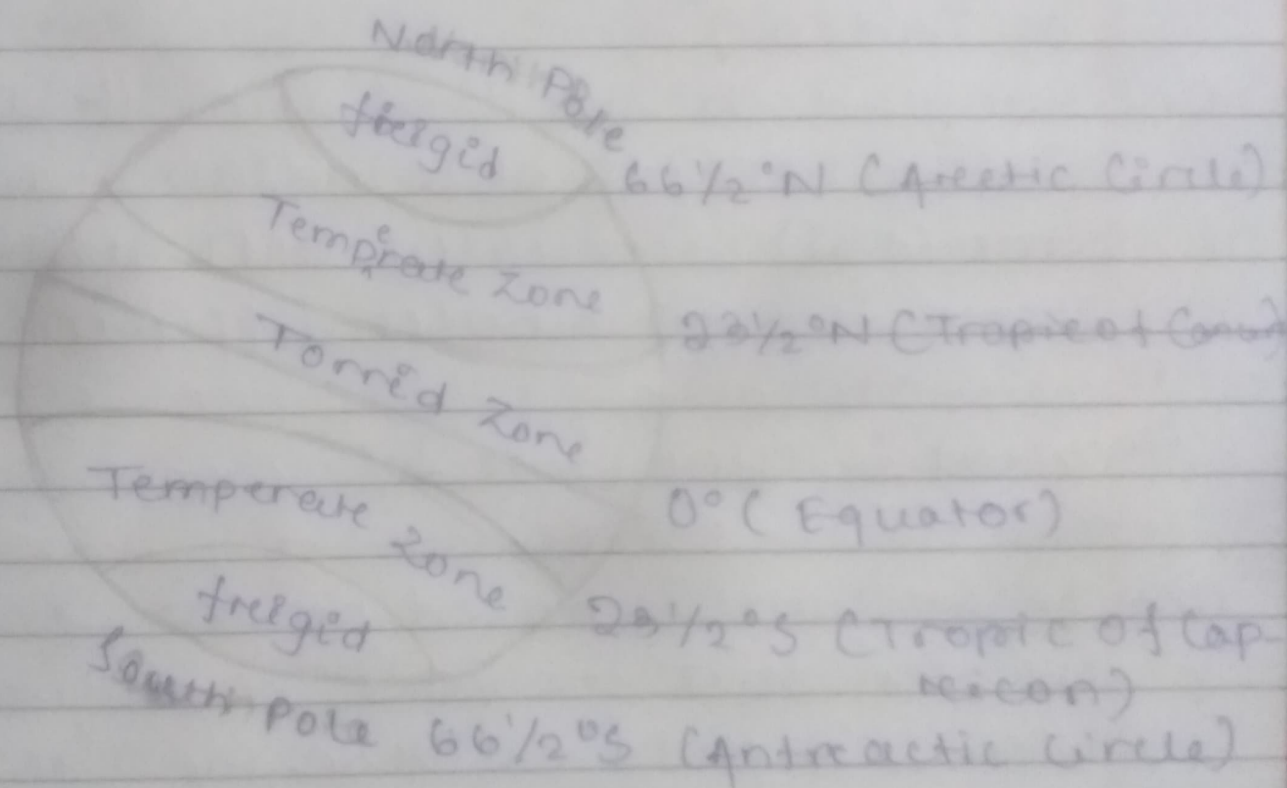 North Pole
frigid
66 1/2 °N (Arectic Circle)
Temperate Zone
23 1/2 °N (Tropic of Cancer)
Torrid Zone
0° (Equator)
Temperate Zone
23 1/2 °S (Tropic of Cap
reicon)
freigid
South Pole
66 1/2 °S (Antreactic Circle)